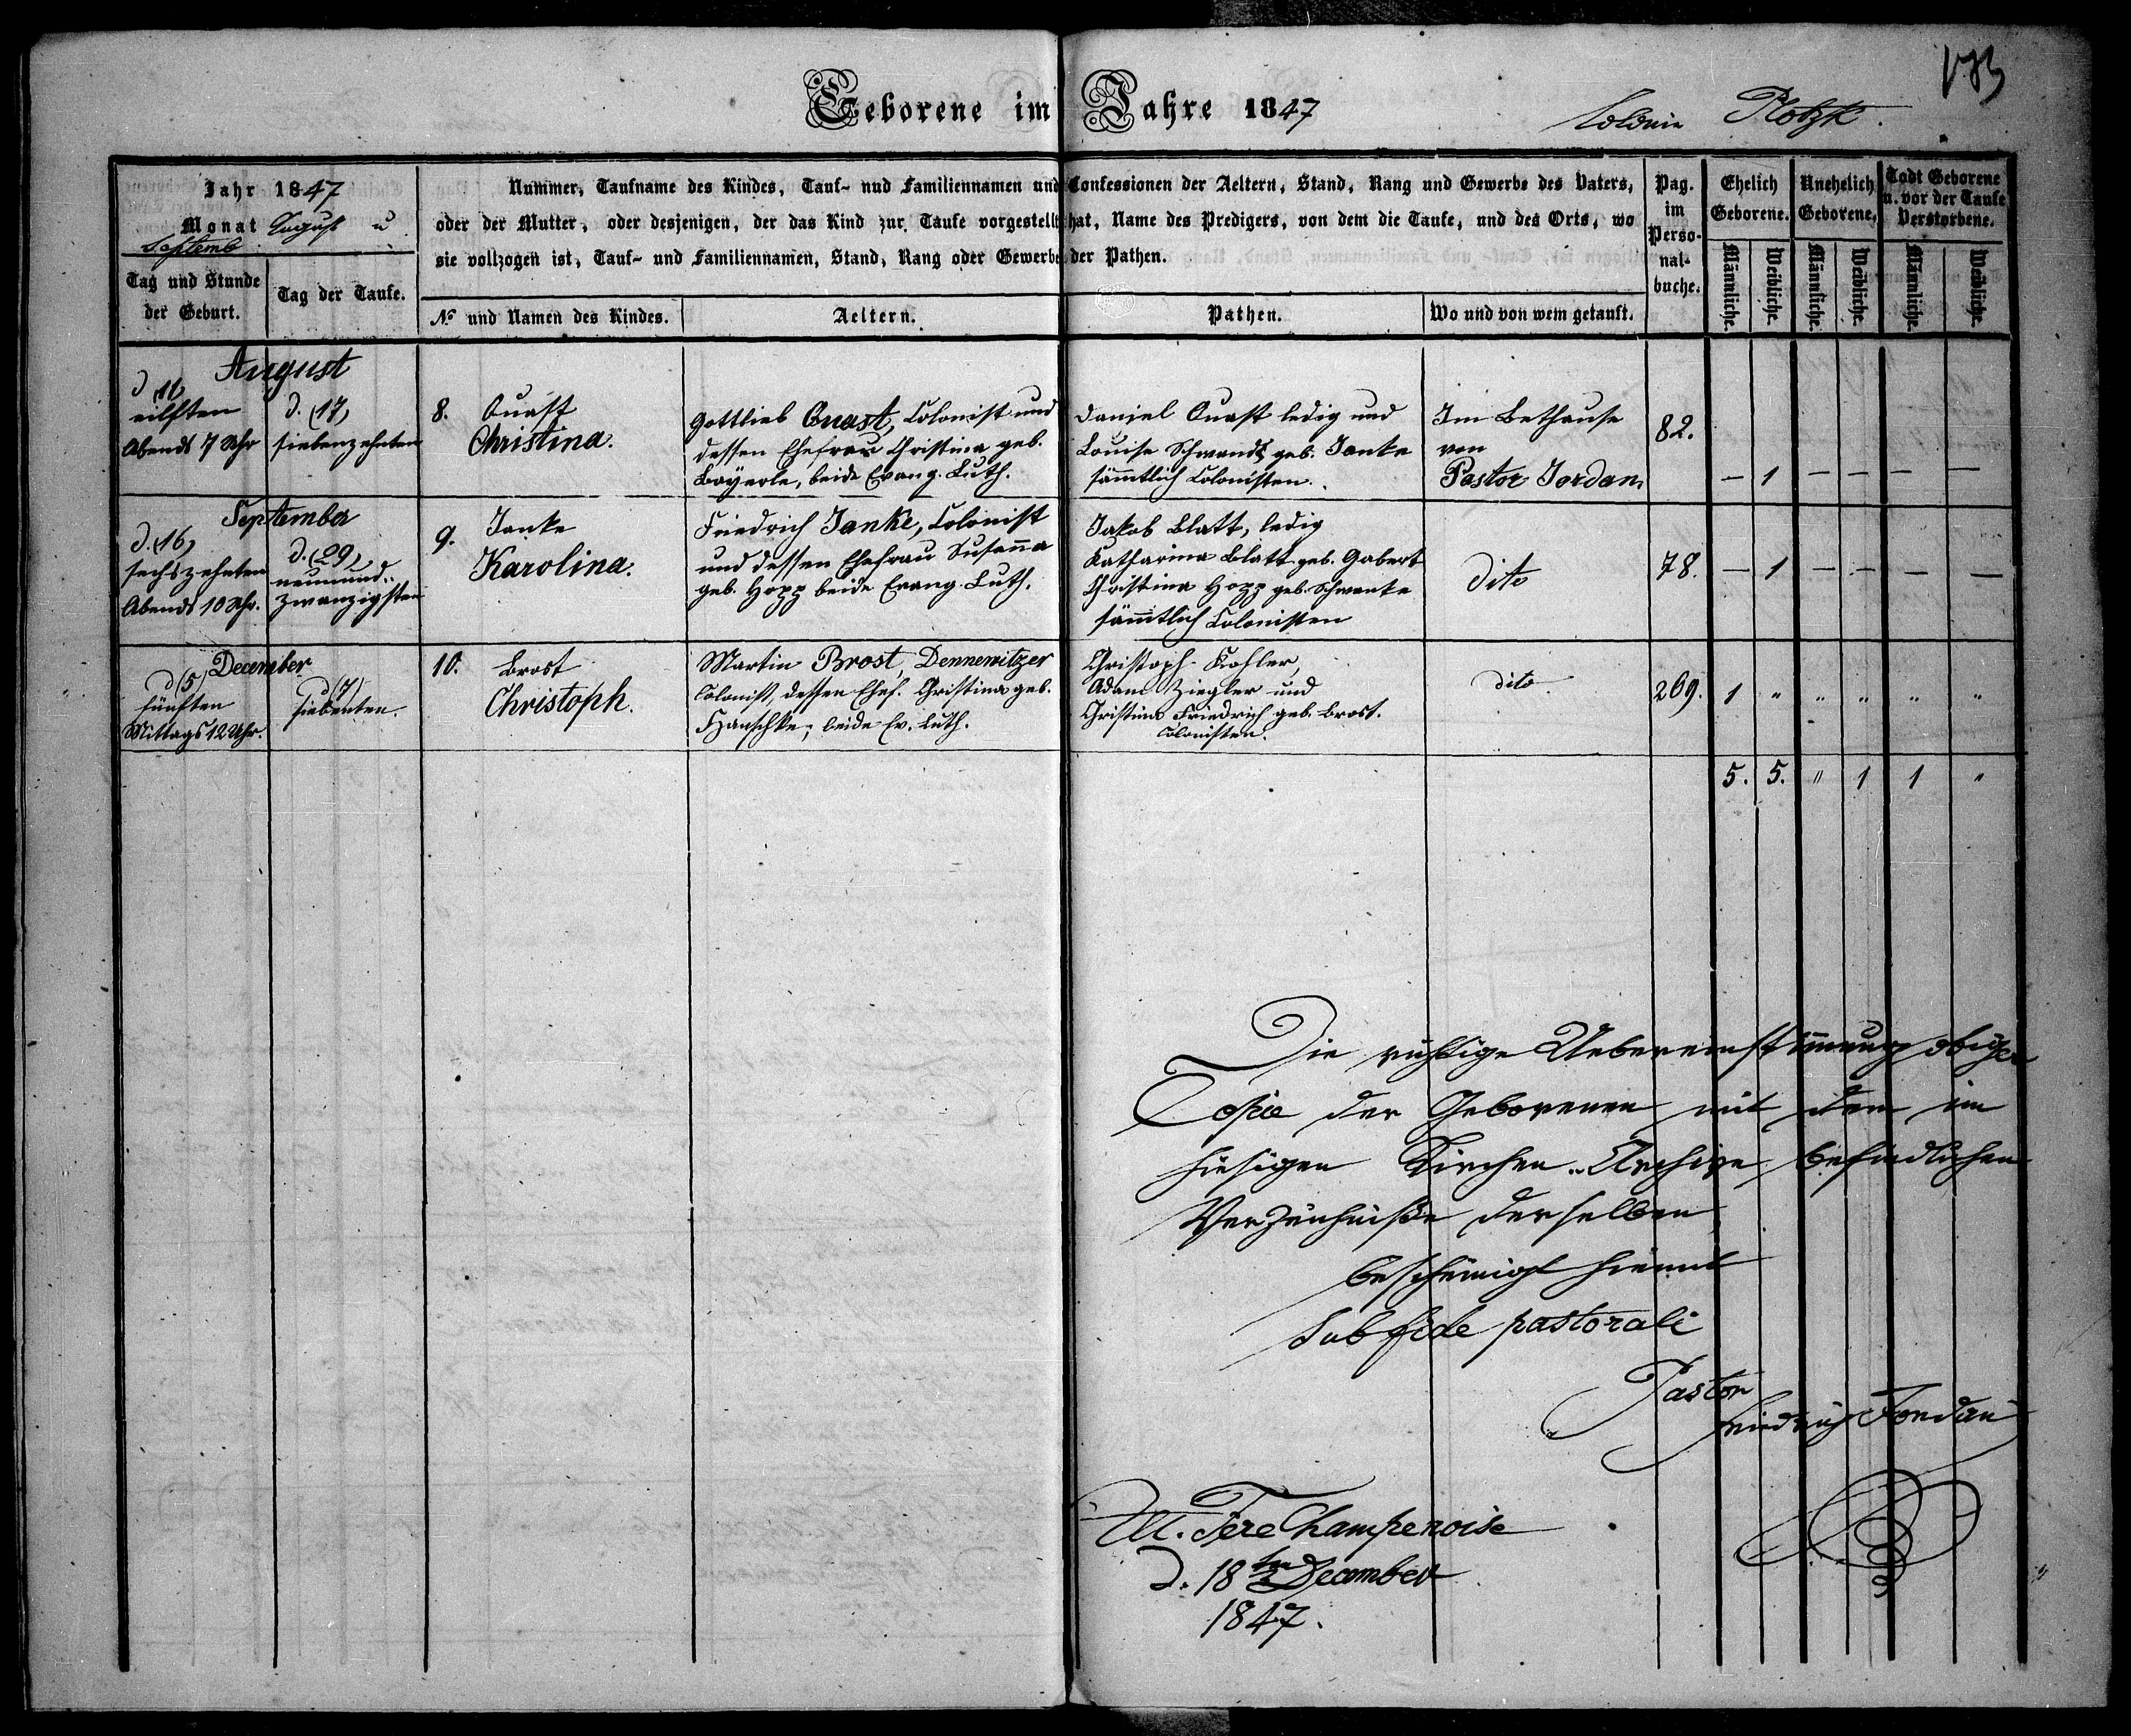 183
Geborene im Jahre 1847
Colonie Plotzk.
Jahr 1847
Monat August u
Septemb.
Tag und Stunde
der Geburt.
Tag der Taufe.
Nummer, Taufname des Kindes, Tauf- nud Familiennamen und Confessionen der Aeltern, Stand, Rang und Gewerbe des Vaters,
oder der Mutter, oder desjenigen, der das Kind zur Taufe vorgestellt hat, Name des Predigers, von dem die Taufe, und des Orts, wo
sie vollzogen ist, Tauf- und Familiennamen, Stand, Rang oder Gewerbe der Pathen.
№ und Namen des Kindes.
Aeltern.
Pathen.
Wo und von wem getauft.
Pag.
im
Perso-
nal-
buche.
Ehelich
Geborene.
Unehelich
Geborene.
Todt Geborene
u. vor der Taufe
Verstorbene.
Männliche.
Weibliche.
Männliche.
Weibliche.
Männliche.
Weibliche.
August
d (11)
eilften
Abends 7 Uhr
d. (17)
siebenzehnten
8. Quast
Christina.
Gottlieb Quast, Colonist und
dessen Ehefrau Christina geb.
Bäyerle, beide Evang. Luth.
Daniel Quast ledig und
Louise Schwandt geb. Janke
sämmtlich Colonisten.
Im Bethause
von
Pastor Jordan.
82.
— 1 — — — —
September
d. (16)
sechszehnten
Abends 10 Uhr.
d. (29)
neunund-
zwanzigsten
9. Janke
Karolina.
Friedrich Janke, Colonist
und dessen Ehefrau Susanna
geb. Hopp beide Evang. Luth.
Jakob Blatt, ledig
Katharina Blatt geb. Gabert
Christina Hopp geb. Schwanke
sämmtlich Colonisten
dito
78.
— 1 — — — —
December
d (5)
fünften
Mittags 12 Uhr.
d (7)
siebenten.
10. Brost
Christoph.
Martin Brost, Dennewitzer
Colonist, dessen Ehef. Christina geb.
Hanschke; beide Ev. Luth.
Christoph Kohler,
Adam Ziegler und
Christina Friedrich geb. Brost.
Colonisten.
dito.
269.
1 " " " " "
5. 5. " 1 1 "
Die richtige Uebereinstimmung obiger
Copie der Geborenen mit dem im
hiesigen Kirchen-Archive befindlichen
Verzeichniße derselben
bescheinigt hiemit
sub fide pastorali
Pastor
Friedrich Jordan
Alt. Fere Champenoise
d. 18ten December
1847.